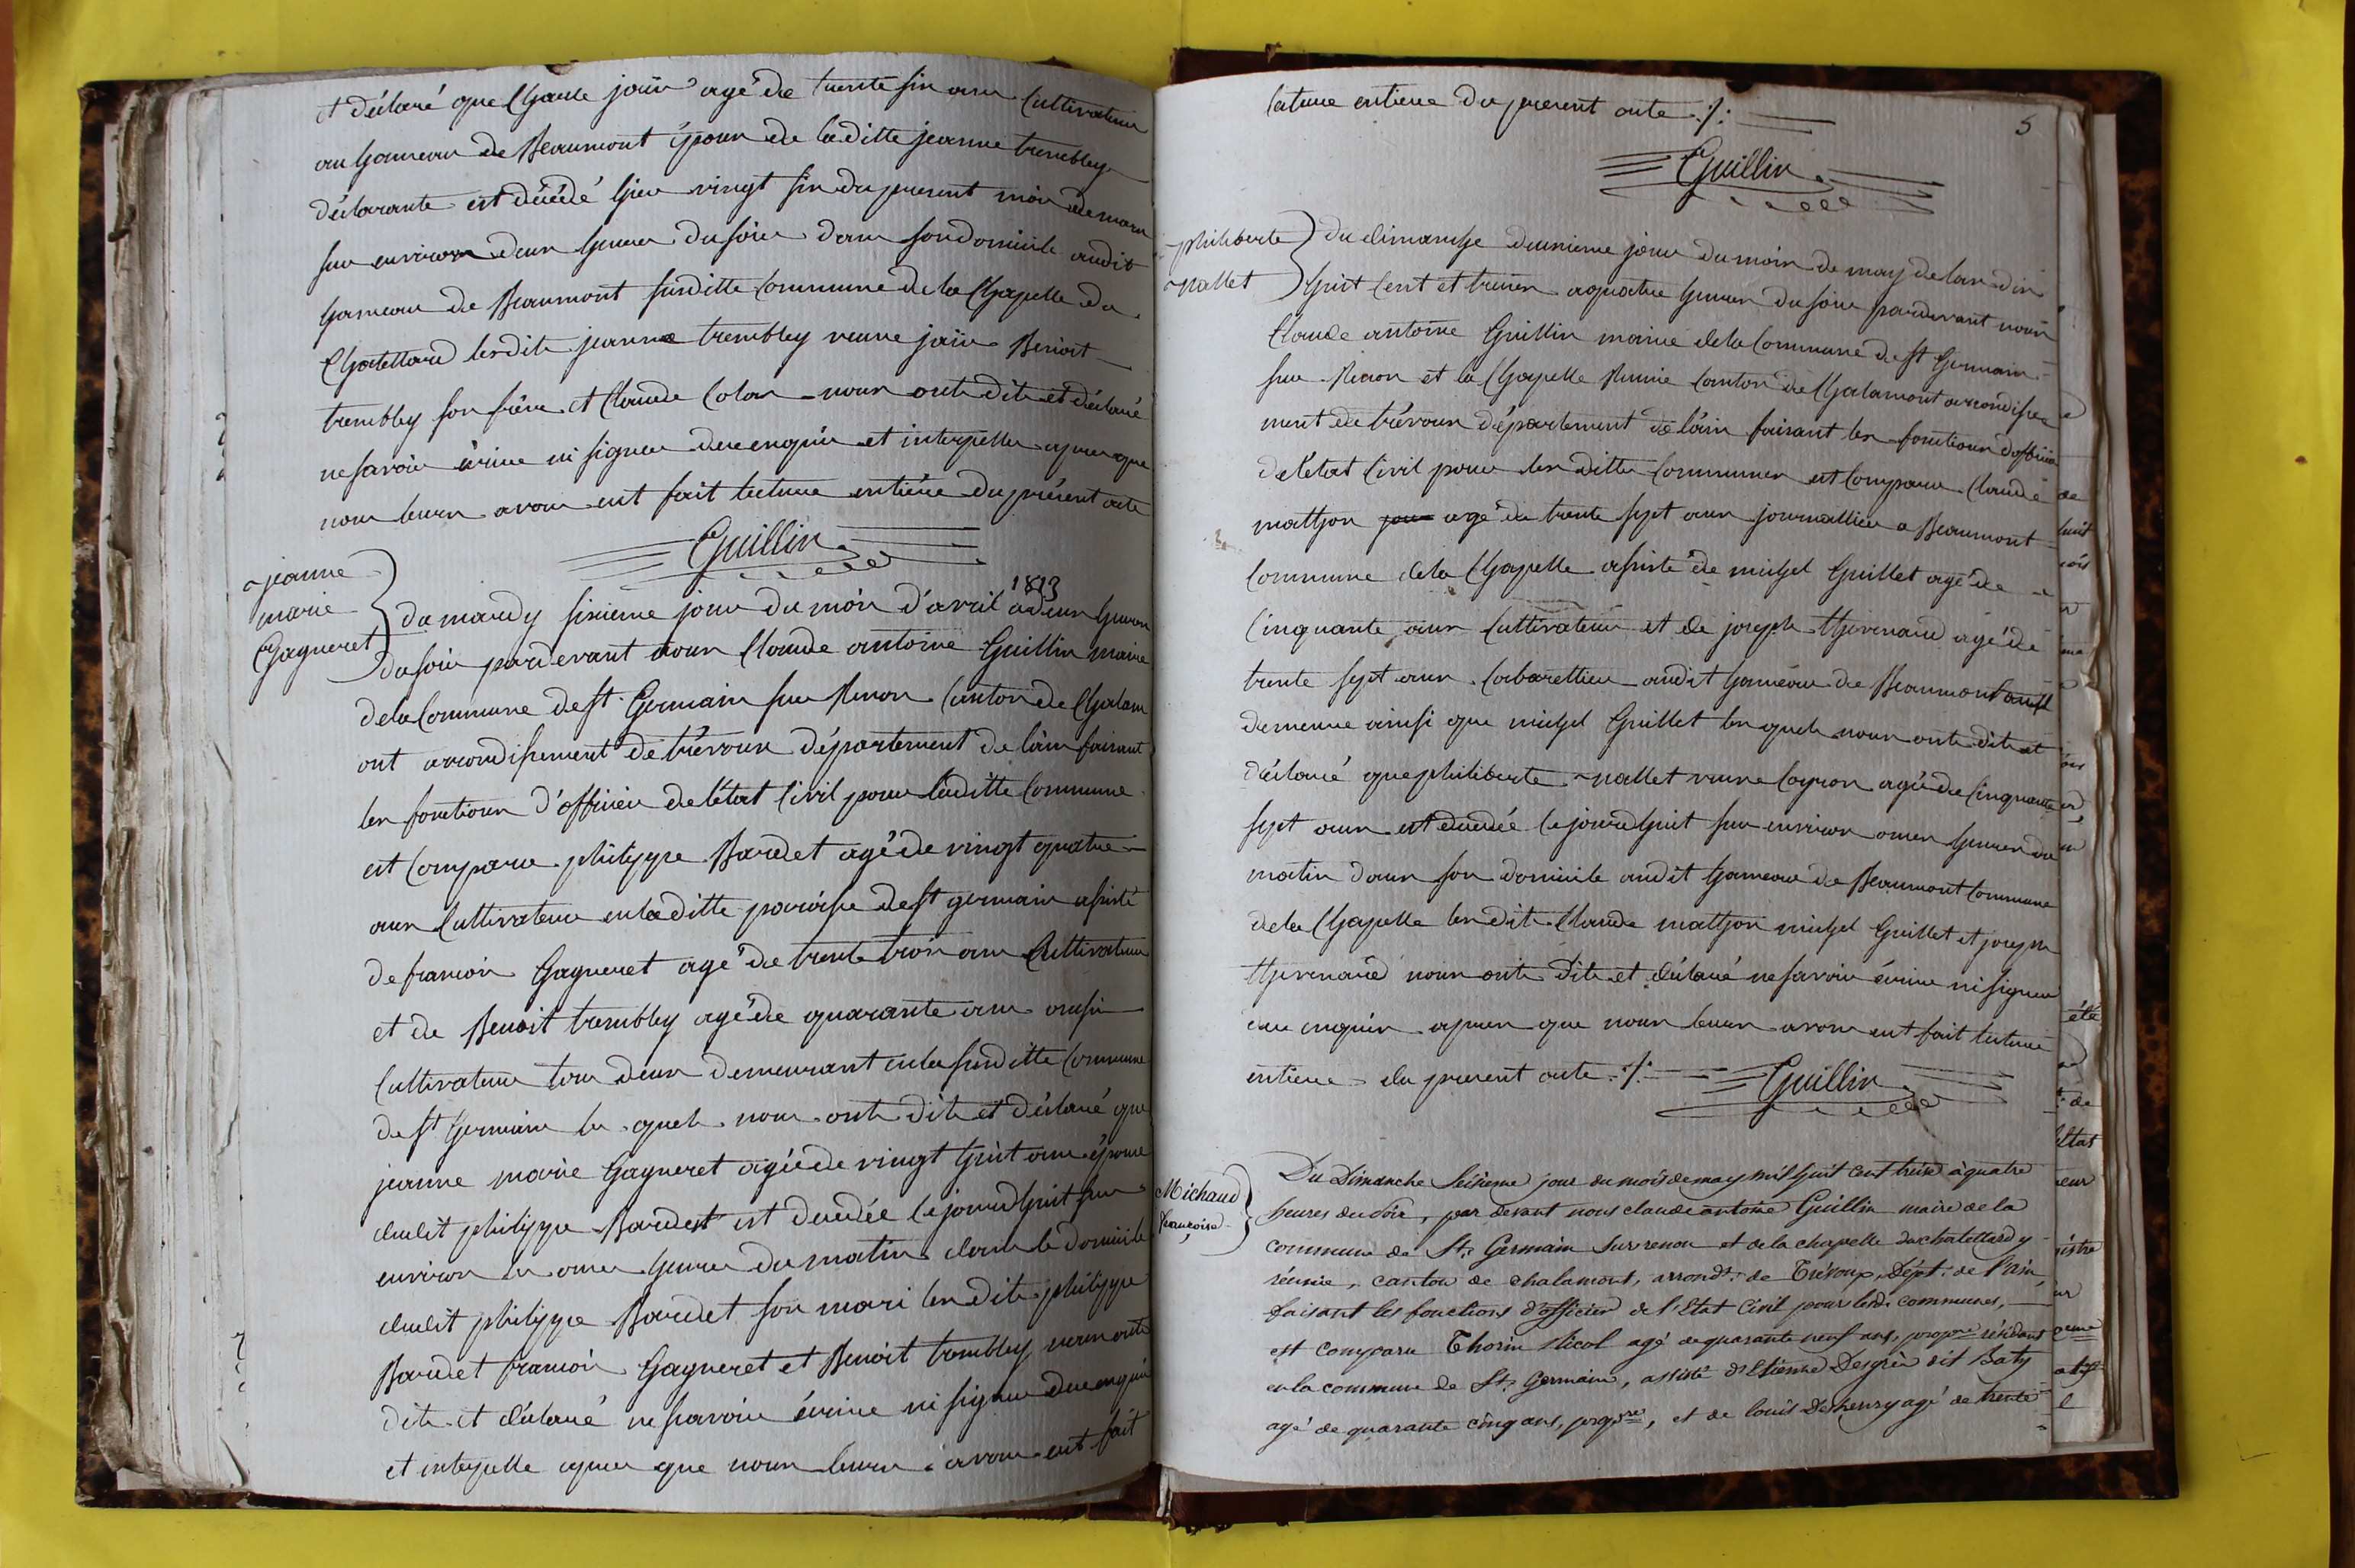 et déclaré que Charle jaïr agé de trente six ans Cultivateur
au hameau de Beaumont époux de laditte jeanne trembley
déclarante est décédé hier vingt six du present mois de mars
sur environ deux heures du soire dans son domicile audit
hameau de Beaumont susditte Commune de la Chapelle du
Chatellard lesdits jeanne trembley veuve jaïr Benoit
trembley son frère et Claude Colas nous onts dits et déclaré
ne savoir écrire ni signer deu enquis et interpelle apres que
nous leurs avons eut fait lecture entière du présent acte
Guillin
jeanne
marie
Gagneret
du mardy sixième jour du mois d'avril 1813 a deux heures
du soir pardevant nous Claude antoine Guillin maire
de la Commune de st Germain sur Renon Canton de Chalam
ont arrondissement de trévoux département de lain faisant
les fonctions d'officier de létat Civil pour laditte Commune
est Comparu philippe Bardet agé de vingt quatre
ans Cultivateur en laditte paroisse de st germain assisté
de francois Gagneret agé de trente trois ans Cultivateur
et de Benoit trembley agé de quarante ans aussi
Cultivateur tous deux demeurant en la susditte Commune
de st Germain les quels nous onts dits et déclaré que
jeanne marie Gagneret agée de vingt huit ans épouse
dudit philippe Bardet est decedée cejourdhuit sur
environ les onze heures du matin dans le domicile
dudit philippe Bardet son mari lesdits philippe
Bardet francois Gagneret et Benoit trembley nous onts
dits et déclaré ne savoir écrire ni signer deu enquis
et interpelle apres que nous leurs avons eut fait
lecture entiere du present acte ./.
5
Guillin
philiberte
nallet
du dimanche deuxieme jour du mois de may de lan dix
huit Cent et treize a quatre heures du soir pardevant nous
Claude antoine Guillin maire de la Commune de st Germain
sur Renon et la Chapelle Reunie Canton de Chalamont arrondisse
ment de trévoux département de lain faisant les fonctions d'officier
de létat Civil pour les dittes Communes est Comparu Claude
mathon agé de trente sept ans journallier a Beaumont
Commune de la Chapelle assisté de michel Guillet agé de
Cinquante ans Cultivateur et de joseph thevenard agé de
trente sept ans Cabarettier audit hameau de Beaumont
demeure ainsi que michel Guillet les quels nous onts dits et
déclaré que philiberte nallet veuve Coyron agé de Cinquante
sept ans est decedée cejourdhuit sur environ onze heures du
matin dans son domicile audit hameau de Beaumont Commune
de la Chapelle lesdits Claude mathon michel Guillet et joseph
thevenard nous onts dits et déclaré ne savoir écrire ni signer
deu enquis apres que nous leurs avons eut fait lecture
entiere du present acte ./. Guillin
Michaud
françoise
Du Dimanche Seizieme jour du mois de may mil huit cent treize à quatre
heures du soir, par devant nous claude antoine Guillin maire de la
commune de St. Germain sur renon et de la chapelle du chatellard y
réunie, canton de chalamont, arrondt. de Trévoux, Dépt. de l'ain,
faisant les fonctions d'officier de l'Etat Civil pour lesd. communes,
est comparu Thorin Nicol agé de quarante neuf ans, propre. résidant
en la commune de St. Germain, assisté d'Etienne Desgrés dit Baty
agé de quarante cinq ans, propre., et de louis Deshenry agé de trente